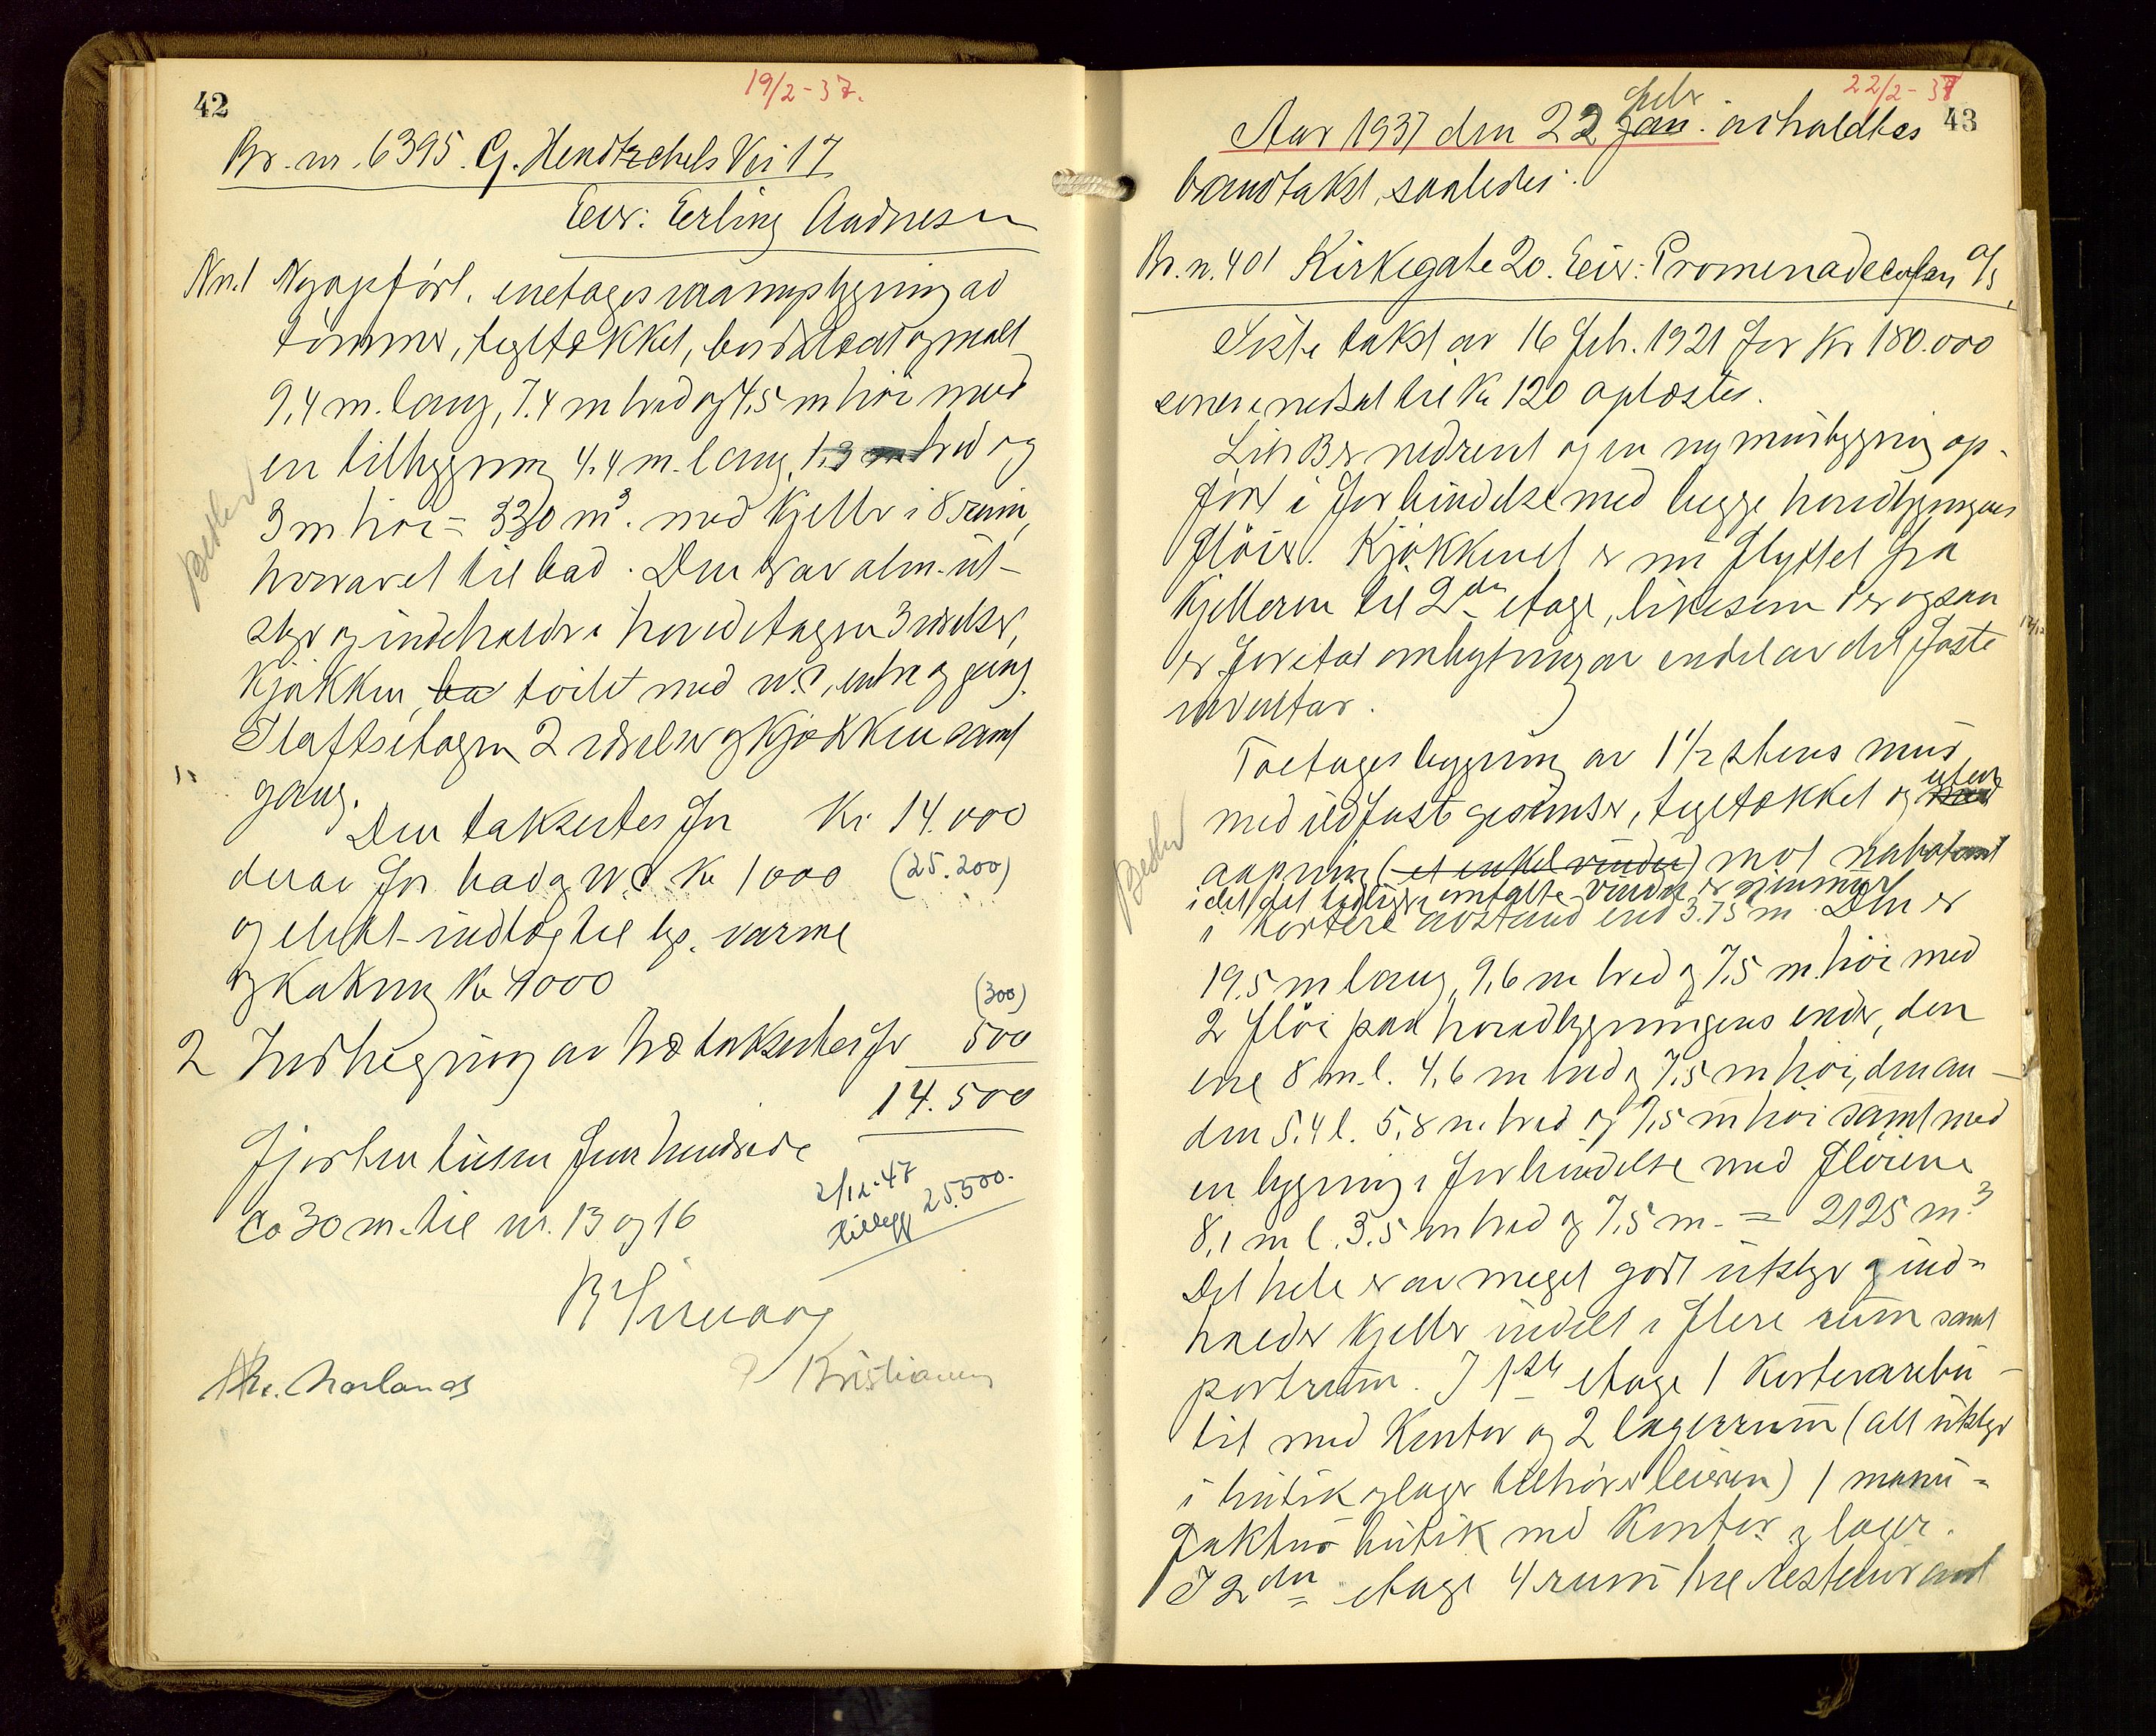 42
19/2-37.
Br. nr. 6395. G. Hendtzchels Vei 17
Eier: Erling Andresen
No. 1 Nyopført, enetages vaaningsbygning av
tømmer, tegltækket, bordklædt og malt
9,4 m. lang, 7.4 m bred og 4,5 m høi med
en tilbygning 4.4 m. lang, 1,3 m bred og
3 m høi = 330 m³. med kjeller i 8 rum,
hvorav et til bad. Den er av alm. ut-
styr og indeholder i hovedetagen 3 værelser,
kjøkken, ba toilet med w.c, entre og gang.
I loftsetagen 2 værelser og kjøkken samt
gang.
Den takseres for Kr 14.000
derav for bad og W.C Kr 1000 (25.200)
og elekt. indlæg til lys, varme
og kokning Kr 4000
(300)
2 Indhegning av træ takseres for 500
14.500
Fjorten tusen fem hundrede
Ca 30 m. til nr. 13 og 16
2/12-47
tillegg 25.500.
Kristiansen
22/2-37
43
febr
Aar 1937 den 22 jan. avholdtes
brandtakst, saaledes:
Br. n. 401 Kirkegate 20. Eier: Promenadecafeen A/S
Siste takst av 16 feb. 1921 for Kr 180.000
senere nedsat til Kr 120 oplæstes.
Litr B er nedrevet og en ny murbygning op-
ført i forbindelse med begge hovedbygningens
fløier. Kjøkkenet er nu flyttet fra
kjelleren til 2den etage, likesom der ogsaa
er foretat ombytning av endel av det faste
inventar.
Toetages bygning av 1 1/2 stens mur
med ildfast gesimser, tegltækket og uten
aapning (et enkel vindu) mot nabotomt
idet det tidligere omtalte vindu er gjenmuret
i kortere avstand end 3.75 m. Den er
19.5 m lang, 9,6 m bred og 7,5 m. høi med
2 fløi paa hovedbygningens ender, den
ene 8 m. l. 4,6 m bred og 7,5 m høi, den an-
den 5,4 l. 5,8 m. bred og 7,5 m høi samt med
en bygning i forbindelse med fløiene
8,1 m l. 3.5 m bred og 7,5 m. = 2125 m.³
Det hele er av meget godt utstyr og ind-
holder kjeller inddelt i flere rum samt
portrum. I 1ste etage 1 kortevarebu-
tik med kontor og 2 lagerrum (alt utstyr
i butik og lager tilhører leieren) 1 manu-
faktur butik med kontor og lager.
I 2den etage 4 rum til restaurant